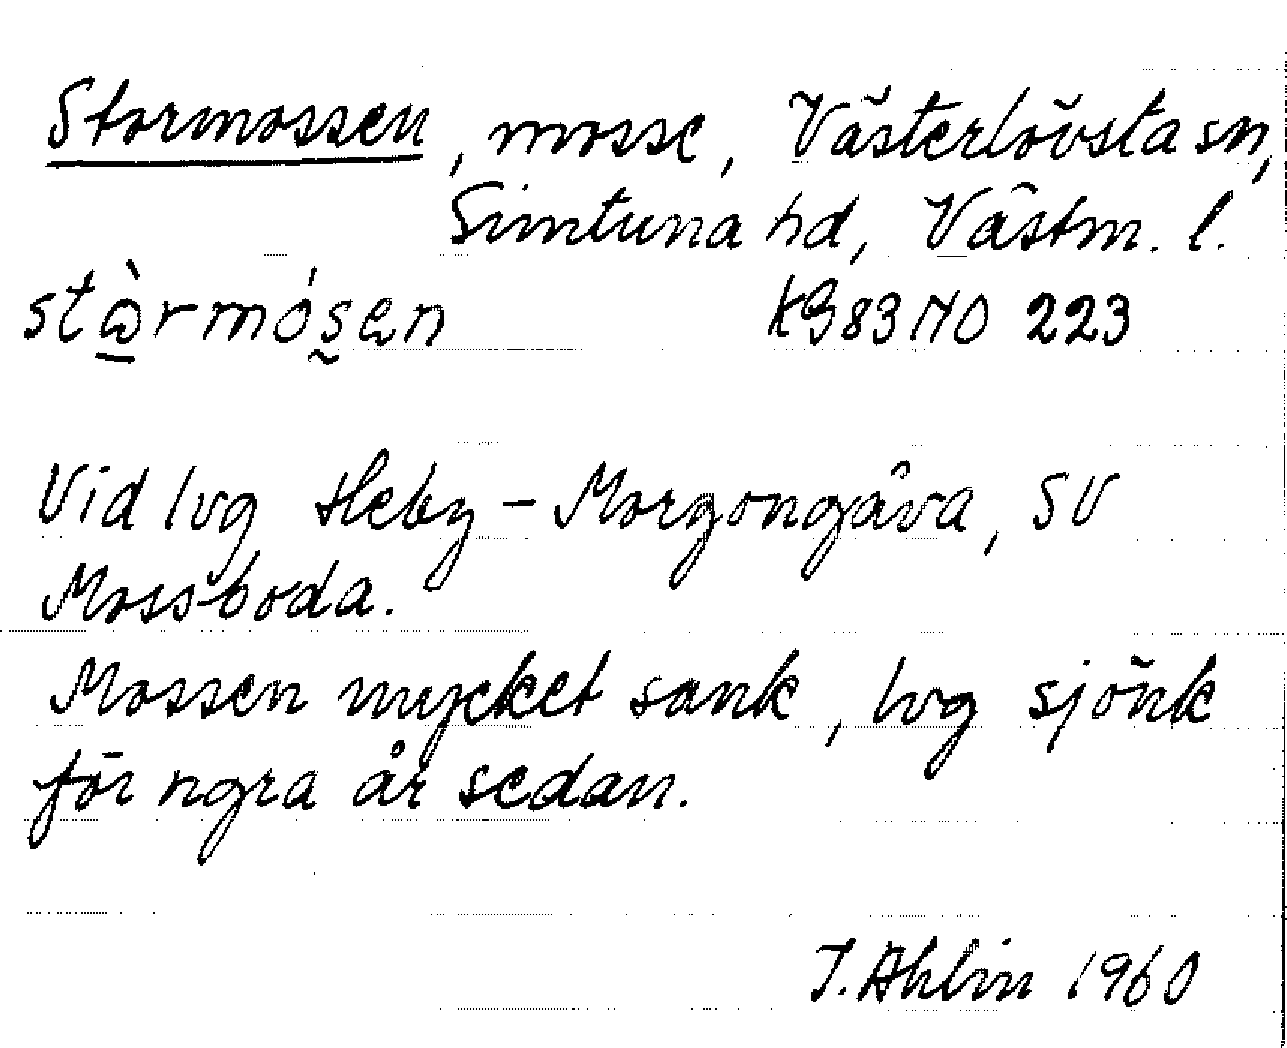 Stormossen, mosse, Västerlövsta sn,
Simtuna hd, Västm. l.
stɷ̠̀rmósen KG 83 NO 223
Vid lvg Heby - Morgongåva, SV
Mossboda.
Mossen mycket sank, lvg sjönk
för ngra år sedan.
T. Ahlin 1960